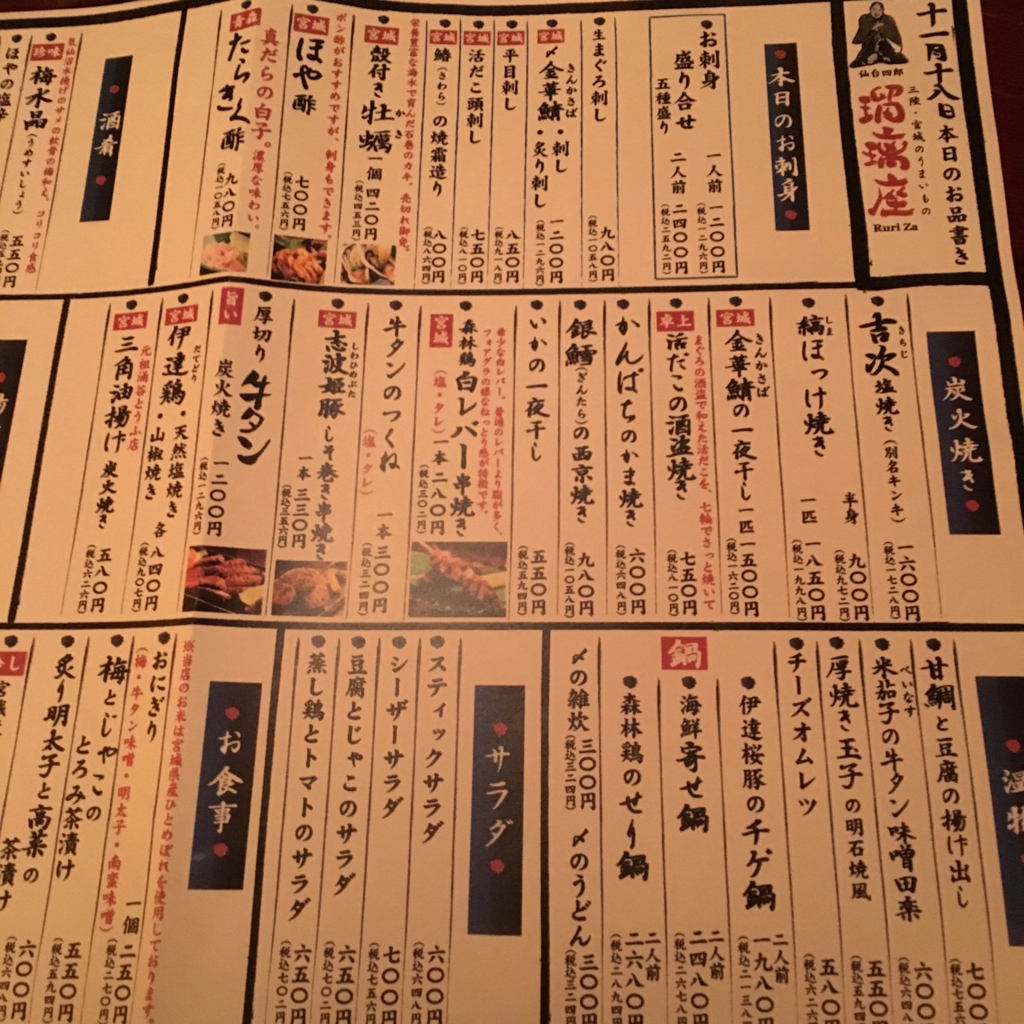 十一月十八日本日のお品書き
仙台四郎
三陸・宮城のうまいもの
瑠璃座
Ruri Za
本日のお刺身
お刺身
盛り合せ
五種盛り
一人前 一二〇〇円
(税込一二九六円)
二人前 二四〇〇円
(税込二五九二円)
生まぐろ刺し
九八〇円
(税込一〇五八円)
宮城
〆金華鯖・刺し・炙り刺し
きんかさば
一二〇〇円
(税込一二九六円)
平目刺し
八五〇円
(税込九一八円)
活だこ頭刺し
七五〇円
(税込八一〇円)
宮城
鰆(さわら)の焼霜造り
八〇〇円
(税込八六四円)
栄養豊富な海水で育んだ石巻のカキ。売切れ御免。
宮城
殻付き牡蠣
かき
一個 四二〇円
(税込四五三円)
ポン酢がおすすめですが、刺身もできます。
宮城
ほや酢
七〇〇円
(税込七五六円)
真だらの白子。濃厚な味わい。
青森
たらきく酢
九八〇円
(税込一〇五八円)
酒肴
気仙沼水揚げのサメの軟骨の梅和え。コリコリ食感
珍味
梅水晶(うめすいしょう)
五五〇円
ほやの塩辛
炭火焼き
吉次塩焼き(別名キンキ)
きちじ
一六〇〇円
(税込一七二八円)
縞ほっけ焼き
しま
半身 九〇〇円
(税込九七二円)
一匹 一八五〇円
(税込一九九八円)
宮城
金華鯖の一夜干し
きんかさば
一匹 一五〇〇円
(税込一六二〇円)
まぐろの酒盗で和えた活だこを、七輪でさっと焼いて
卓上
活だこの酒盗焼き
七五〇円
(税込八一〇円)
かんぱちのかま焼き
六〇〇円
(税込六四八円)
銀鱈(ぎんたら)の西京焼き
九八〇円
(税込一〇五八円)
いかの一夜干し
五五〇円
(税込五九四円)
希少な白レバー。普通のレバーより脂が多く、
フォアグラの様なねっとり感が特徴です。
宮城
森林鶏白レバー串焼き
(塩・タレ)
一本 二八〇円
(税込三〇二円)
牛タンのつくね
(塩・タレ)
一本 三〇〇円
(税込三二四円)
宮城
志波姫豚しそ巻き串焼き
しわひめぶた
一本 三三〇円
(税込三五六円)
旨い
厚切り牛タン
炭火焼き
一二〇〇円
(税込一二九六円)
宮城
伊達鶏・天然塩焼き
だてどり
・山椒焼き
各 八四〇円
(税込九〇七円)
元祖涌谷とうふ店
宮城
三角油揚げ炭火焼き
五八〇円
(税込六二六円)
甘鯛と豆腐の揚げ出し
七〇〇円
(税込七五六
米茄子の牛タン味噌田楽
べいなす
六〇〇円
(税込六四八
厚焼き玉子の明石焼風
五五〇円
(税込五九四
チーズオムレツ
五八〇円
(税込六二六
鍋
伊達桜豚のチゲ鍋
二人前
一九八〇円
(税込二一三八
海鮮寄せ鍋
二人前
二四八〇円
(税込二六七八
森林鶏のせり鍋
二人前
二六八〇円
(税込二八九四
〆の雑炊 三〇〇円
(税込三二四円)
〆のうどん 三〇〇円
サラダ
スティックサラダ
六〇〇円
(税込六四八円
シーザーサラダ
七〇〇円
(税込七五六円
豆腐とじゃこのサラダ
六五〇円
(税込七〇二円
蒸し鶏とトマトのサラダ
六五〇円
(税込七〇二円
お食事
※当店のお米は宮城県産ひとめぼれを使用しております。
おにぎり
(梅・牛タン味噌・明太子・南蛮味噌)
一個 二五〇円
(税込二七〇円)
梅とじゃこの
とろみ茶漬け
五五〇円
(税込五九四円)
炙り明太子と高菜の
茶漬け
六〇〇円
(税込六四八円)